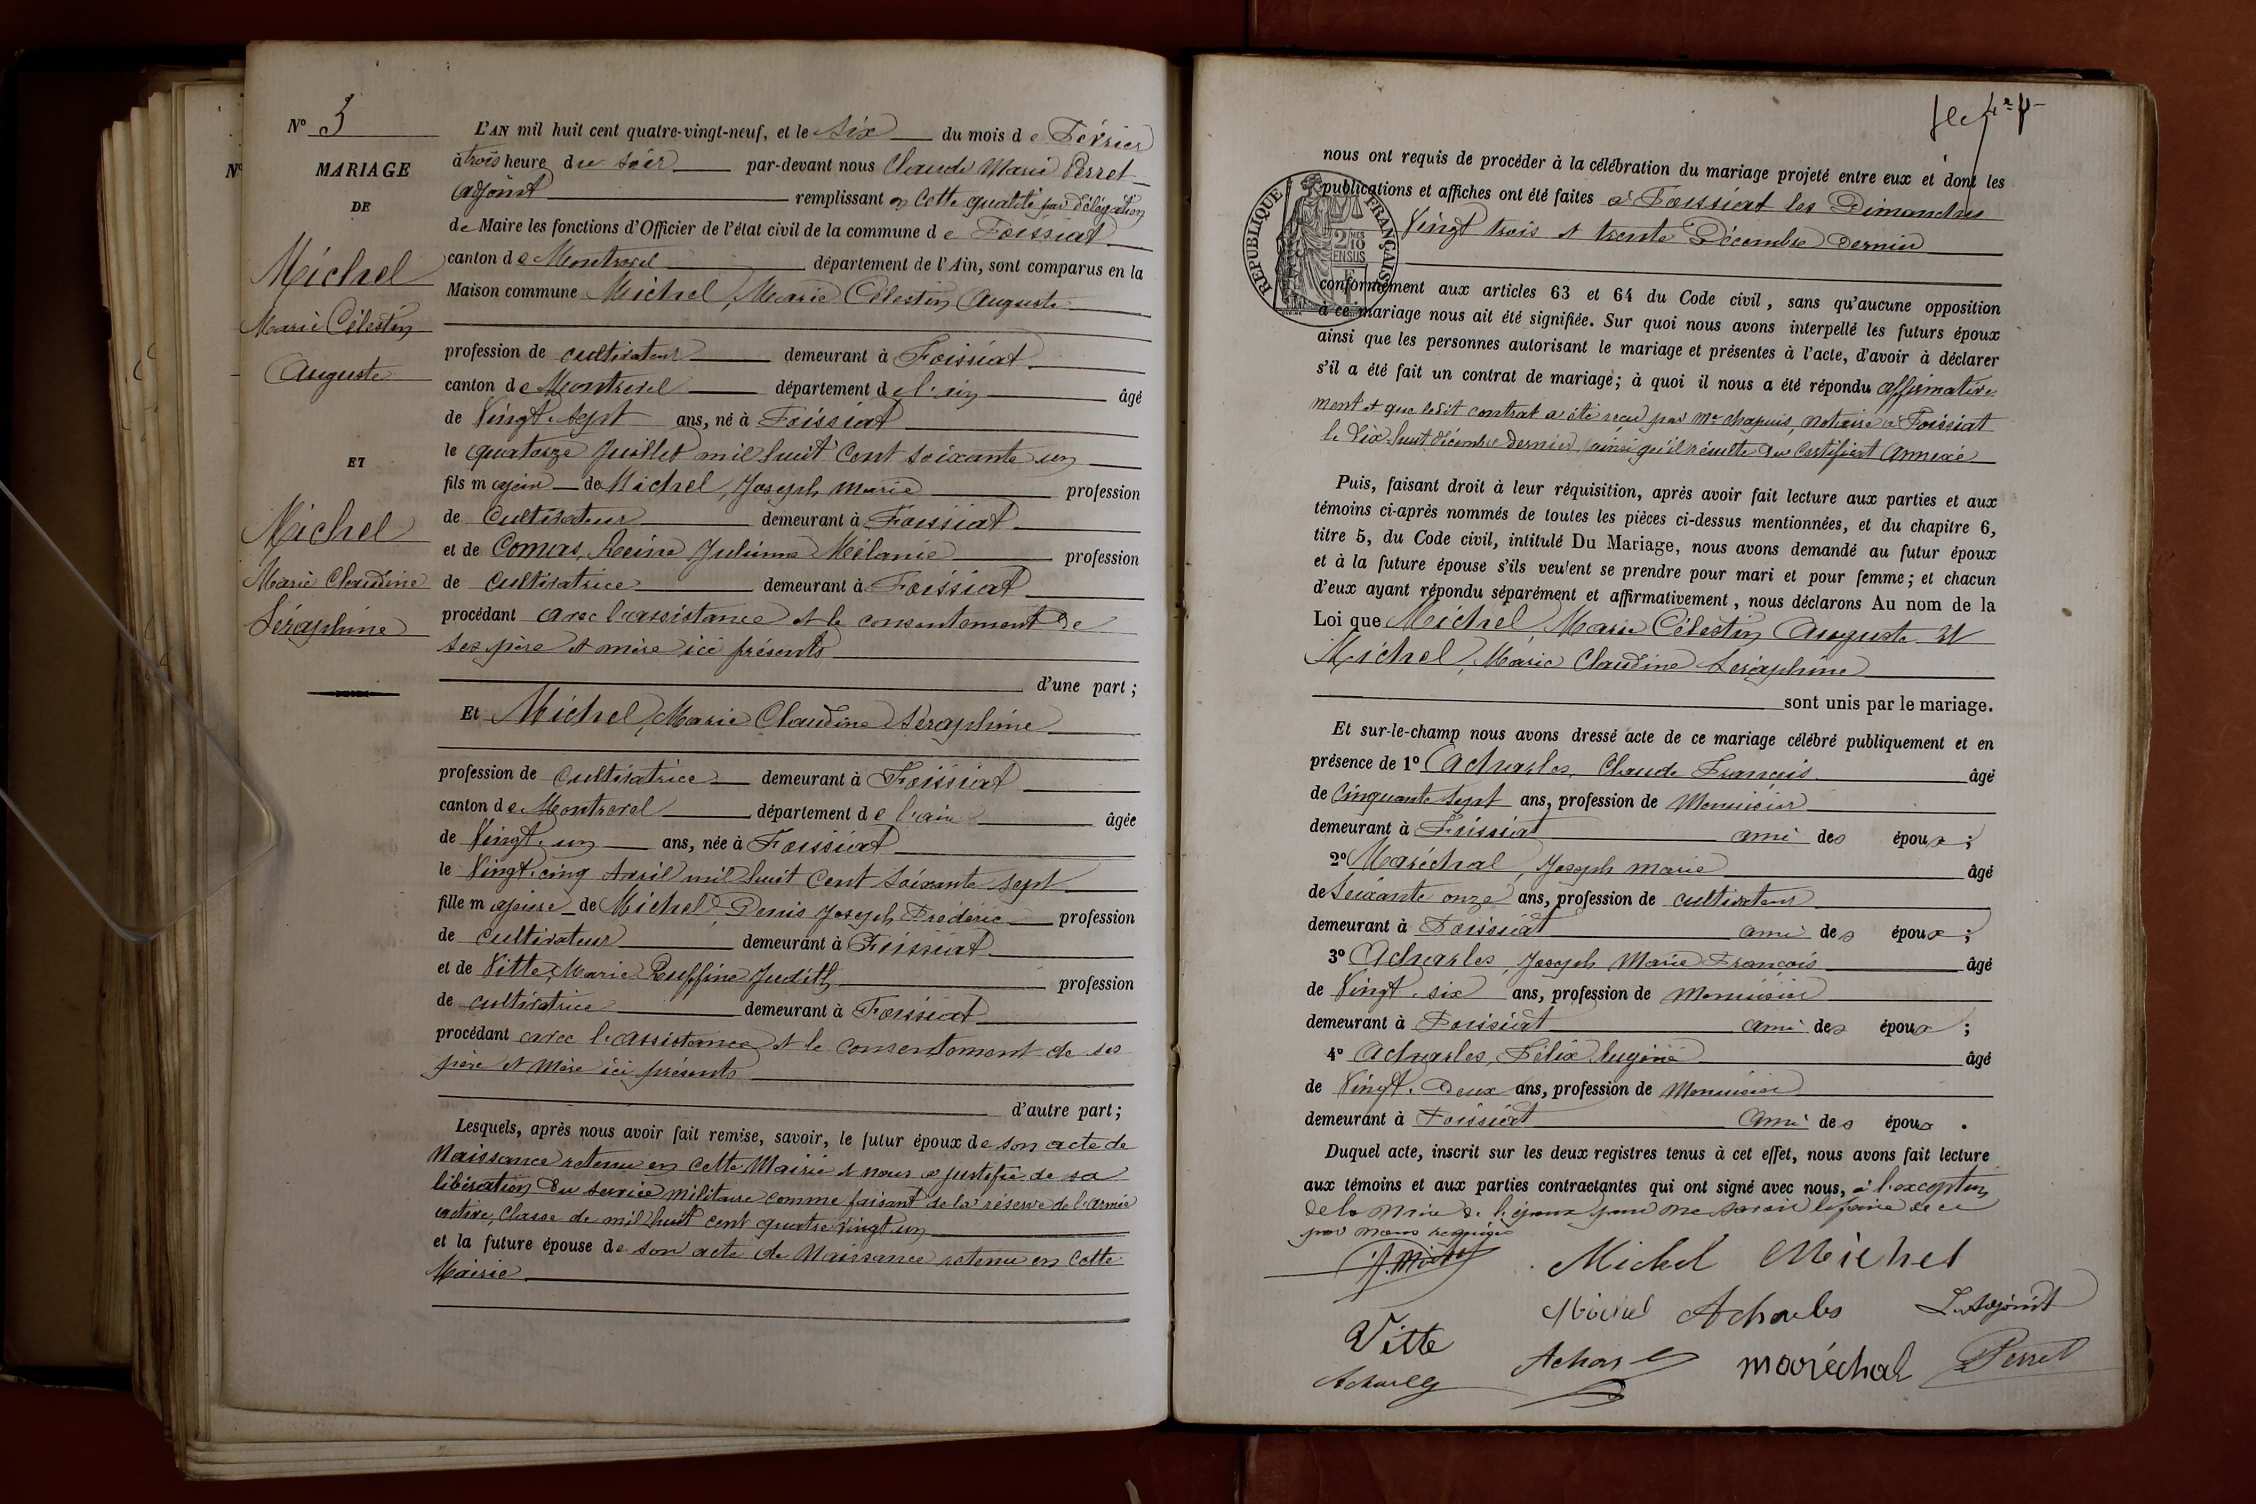 N° 3
N°
MARIAGE
DE
Michel
Marie Célestin
Auguste
ET
Michel
Marie Claudine
Séraphine
L'AN mil huit cent quatre-vingt-neuf, et le six du mois de Février
à trois heure du soir par-devant nous Claude Marie Perret
adjoint remplissant en cette qualité par délégation
de Maire les fonctions d'Officier de l'état civil de la commune de Foissiat
canton de Montrevel département de l'Ain, sont comparus en la
Maison commune Michel, Marie Célestin Auguste
profession de cultivateur demeurant à Foissiat
canton de Montrevel département de l'ain âgé
de Vingt-sept ans, né à Foissiat
le quatorze Juillet mil huit cent soixante un
fils majeur de Michel, Joseph Marie profession
de Cultivateur demeurant à Foissiat
et de Comas, Reine Julienne Mélanie profession
de cultivatrice demeurant à Foissiat
procédant avec l'assistance et le consentement de
ses père et mère ici présents
d'une part ;
Et Michel, Marie Claudine Séraphine
profession de Cultivatrice demeurant à Foissiat
canton de Montrevel département de l'ain âgée
de Vingt-un ans, née à Foissiat
le Vingt-cinq Avril mil huit cent soixante sept
fille majeure de Michel Denis Joseph Frédéric profession
de cultivateur demeurant à Foissiat
et de Vitte, Marie Ruffine Judith profession
de cultivatrice demeurant à Foissiat
procédant avec l'assistance et le consentement de ses
père et mère ici présents
d'autre part ;
Lesquels, après nous avoir fait remise, savoir, le futur époux de son acte de
Naissance retenu en cette Mairie et nous a justifié de sa
libération du service militaire comme faisant de la réserve de l'armée
active, Classe de mil huit cent quatre vingt un
et la future épouse de son acte de Naissance retenu en cette
Mairie
nous ont requis de procéder à la célébration du mariage projeté entre eux et dont les
publications et affiches ont été faites à Foissiat les Dimanches
Vingt trois et trente Décembre dernier
RÉPUBLIQUE FRANÇAISE
2/10
EN SUS
conformément aux articles 63 et 64 du Code civil, sans qu'aucune opposition
à ce mariage nous ait été signifiée. Sur quoi nous avons interpellé les futurs époux
ainsi que les personnes autorisant le mariage et présentes à l'acte, d'avoir à déclarer
s'il a été fait un contrat de mariage ; à quoi il nous a été répondu affirmative
ment et que ledit contrat a été reçu par Me Chapuis, Notaire à Foissiat
le Dix huit décembre dernier, ainsi qu'il résulte du Certificat Annexé
Puis, faisant droit à leur réquisition, après avoir fait lecture aux parties et aux
témoins ci-après nommés de toutes les pièces ci-dessus mentionnées, et du chapitre 6,
titre 5, du Code civil, intitulé Du Mariage, nous avons demandé au futur époux
et à la future épouse s'ils veulent se prendre pour mari et pour femme ; et chacun
d'eux ayant répondu séparément et affirmativement, nous déclarons Au nom de la
Loi que Michel, Marie Célestin Auguste et
Michel, Marie Claudine Séraphine
sont unis par le mariage.
Et sur-le-champ nous avons dressé acte de ce mariage célébré publiquement et en
présence de 1° Acharles, Claude François âgé
de Cinquante sept ans, profession de Menuisier
demeurant à Foissiat ami des époux ;
2° Maréchal, Joseph Marie âgé
de Soixante onze ans, profession de cultivateur
demeurant à Foissiat ami des époux ;
3° Acharles, Joseph Marie François âgé
de Vingt-six ans, profession de Menuisier
demeurant à Foissiat ami des époux ;
4° Acharles, Félix Eugène âgé
de Vingt-Deux ans, profession de Menuisier
demeurant à Foissiat ami des époux .
Duquel acte, inscrit sur les deux registres tenus à cet effet, nous avons fait lecture
aux témoins et aux parties contractantes qui ont signé avec nous, à l'exception
de la Mère de l'époux pour ne savoir le faire de ce
par nous requise
J. Michel Michel Michel
Michel Acharles L'adjoint
Vitte
Acharles Acharles maréchal Perret